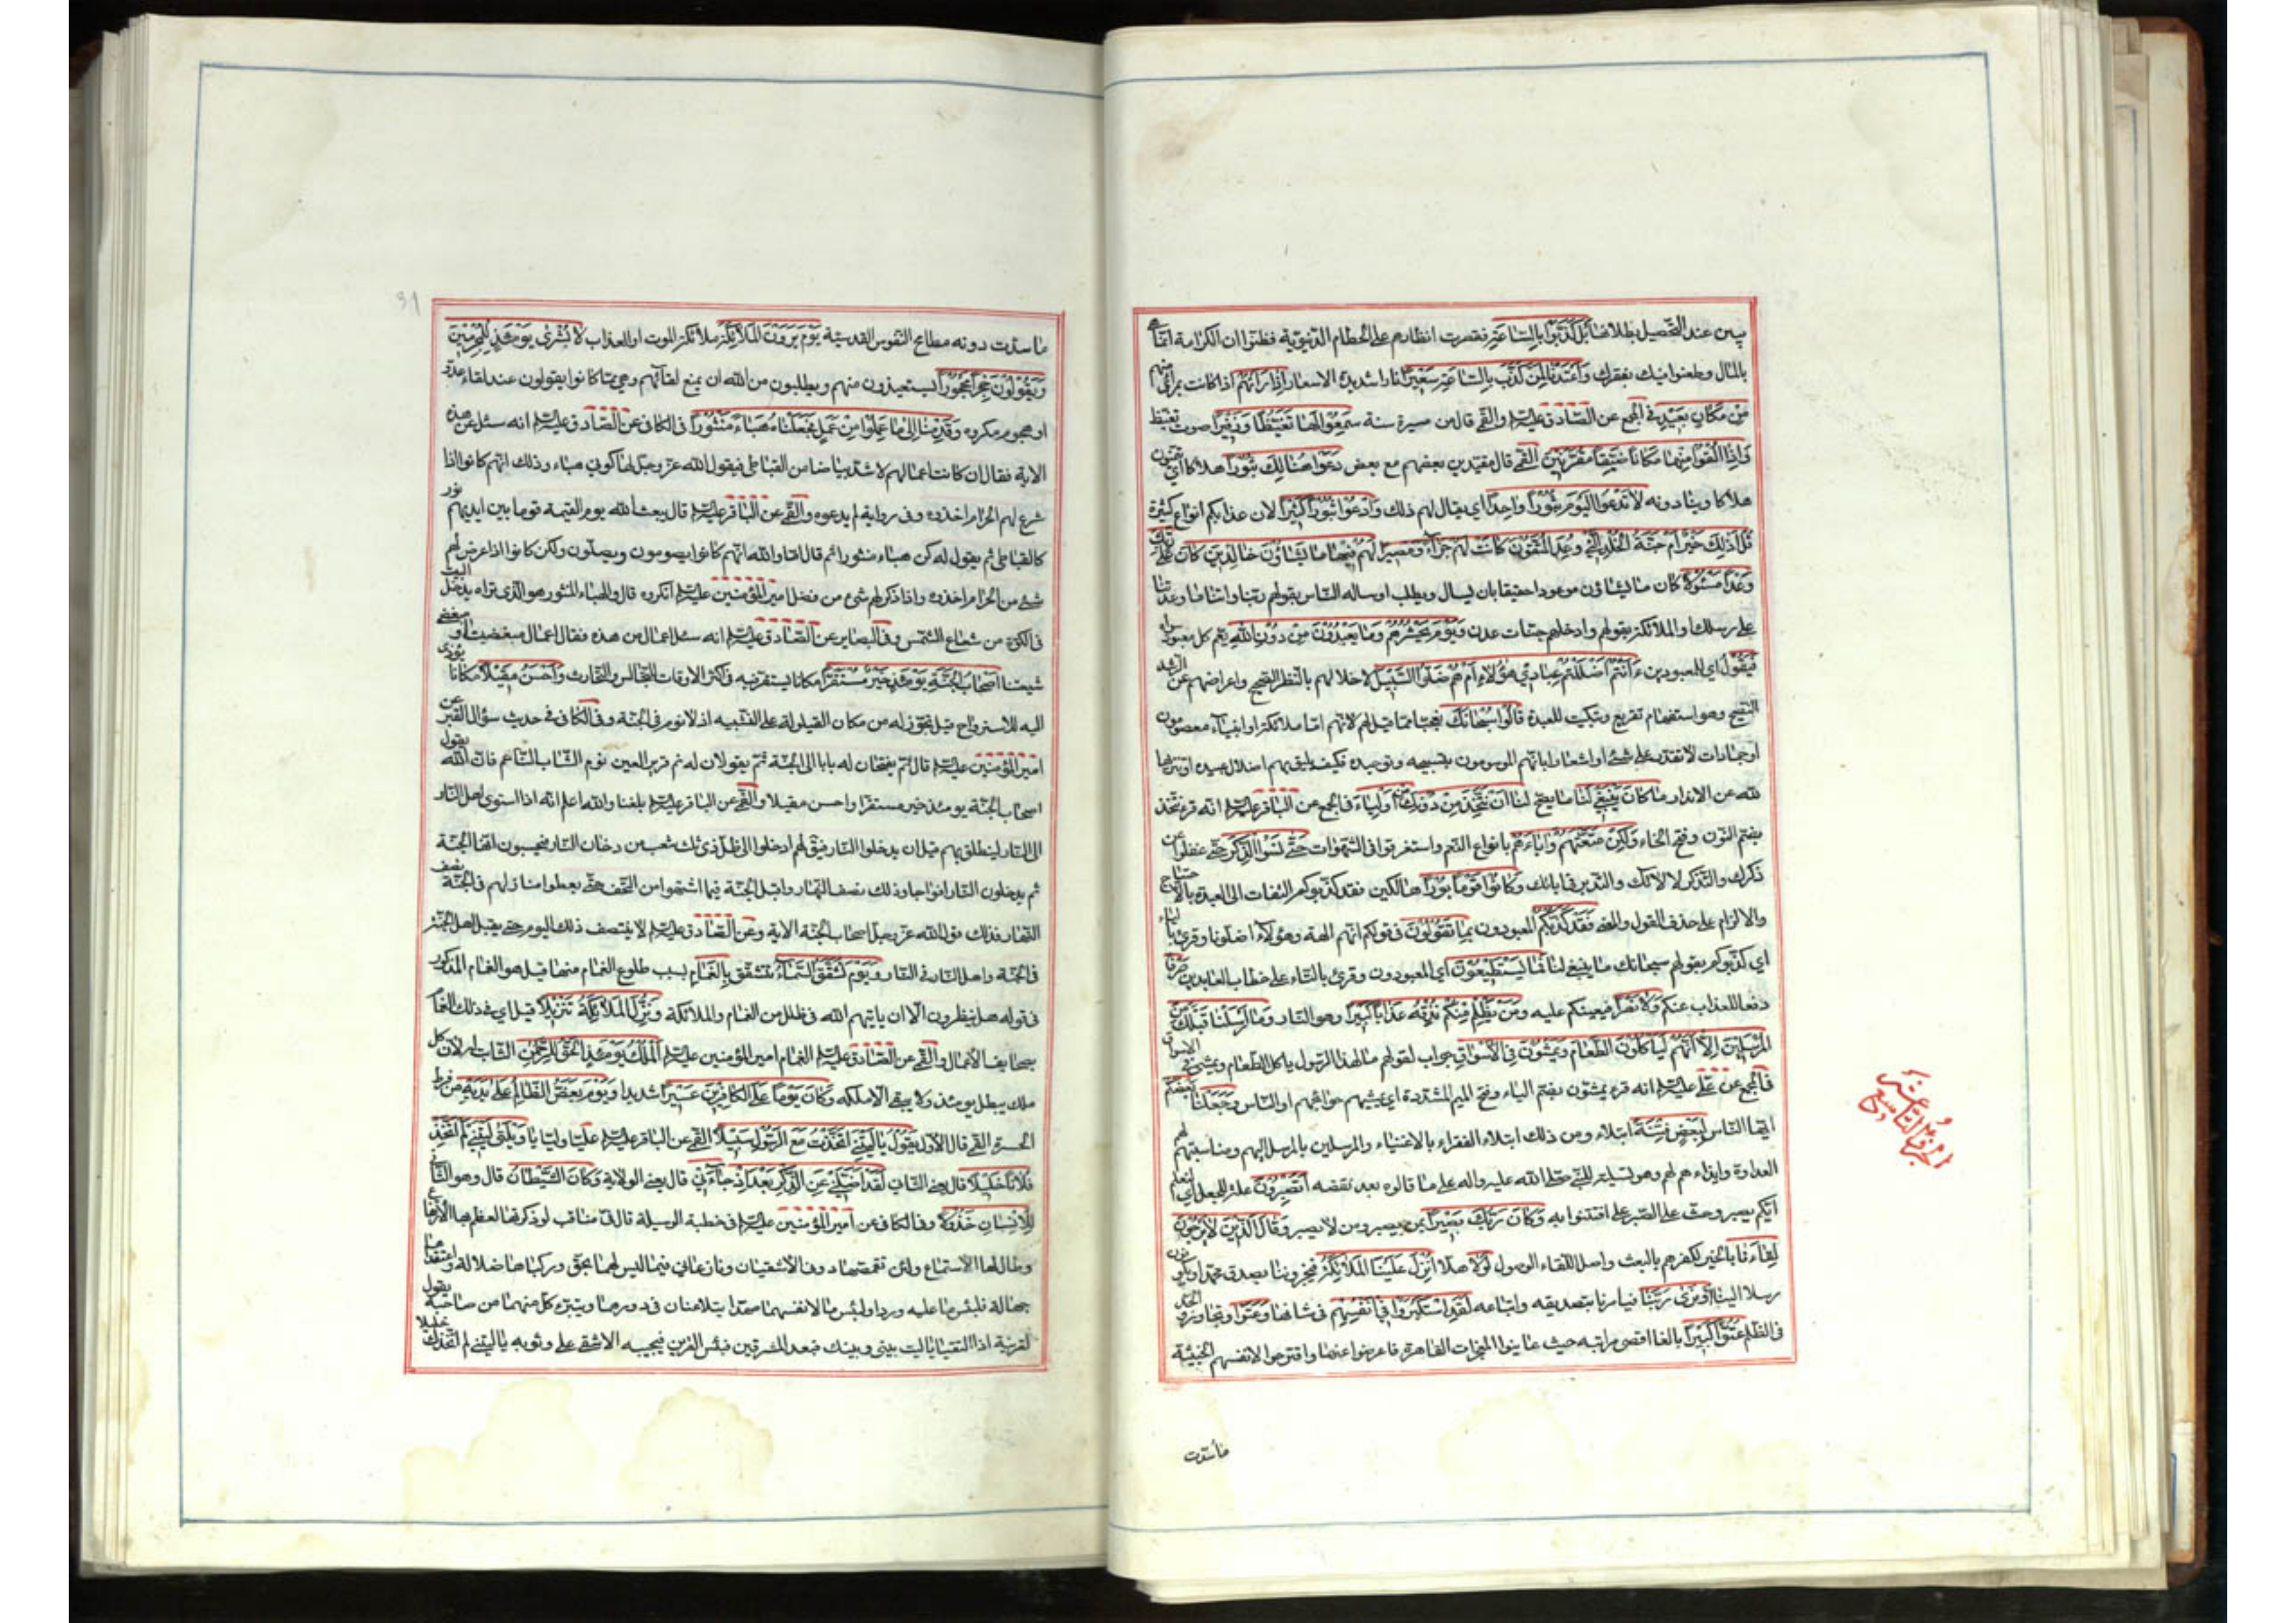 يبين عند التحصيل بطلانها بَلْ كَذَّبُوا بِالسّاعَةِ فقصرت انظارهم على الحطام الدنيوية فظنوا ان الكرامة انما هي
بالمال وطعنوا فيك بفقرك وَاَعْتَدْنا لِمَنْ كَذَّبَ بِالسّاعَةِ سَعيرًا نارا شديدة الاسعار اِذا رَاَتْهُمْ اذا كانت بمرأى منهم
مِنْ مَكانٍ بَعيدٍ في المجمع عن الصادق عليه السلم والقمي قال من مسيرة سنة سَمِعُوا لَها تَغَيُّظًا وَزَفيرًا صوت تغيظ
وَاِذا اُلْقُوا مِنْها مَكانًا ضَيِّقًا مُقَرَّنينَ القمي قال مقيدين بعضهم مع بعض دَعَوْا هُنالِكَ ثُبُورًا هلاكا اي يتمنون
هلاكا وينادونه لا تَدْعُوا الْيَوْمَ ثُبُورًا واحِدًا اي يقال لهم ذلك وَادْعُوا ثُبُورًا كَثيرًا لان عذابكم انواع كثيرة
قُلْ اَذلِكَ خَيْرٌ اَمْ جَنَّةُ الْخُلْدِ الَّتي وُعِدَ الْمُتَّقُونَ كانَتْ لَهُمْ جَزاءً وَمَصيرًا لَهُمْ فيها ما يَشاؤُنَ خالِدينَ كانَ عَلى رَبِّكَ
وَعْدًا مَسْئُولًا كان ما يشاؤن موعودا حقيقا بان يسال ويطلب او ساله الناس بقولهم ربنا واتنا ما وعدتنا
على رسلك والملائكة بقولهم وادخلهم جنات عدن وَيَوْمَ يَحْشُرُهُمْ وَما يَعْبُدُونَ مِنْ دُونِ اللهِ يعم كل معبود سواه
فَيَقُولُ اي للمعبودين ءَاَنْتُمْ اَضْلَلْتُمْ عِبادي هؤُلاءِ اَمْ هُمْ ضَلُّوا السَّبيلَ لاخلالهم بالنظر الصحيح واعراضهم عن المرشد
النصيح وهو استفهام تقريع وتبكيت للعبدة قالُوا سُبْحانَكَ تعجبا مما قيل لهم لانهم اما ملائكة او انبياء معصومون
او جمادات لا تقدر على شئ او اشعارا بانهم الموسومون بتسبيحه وتوحيده فكيف يليق بهم اضلال عبيده او تنزيها
لله عن الانداد ما كانَ يَنْبَغي لَنا ما يصح لنا اَنْ نَتَّخِذَ مِنْ دُونِكَ مِنْ اَوْلِياءَ في المجمع عن الباقر عليه السلم انه قرء نتخذ
بضم النون وفتح الخاء وَلكِنْ مَتَّعْتَهُمْ وَاباءَهُمْ بانواع النعم واستغرقوا في الشهوات حَتّى نَسُوا الذِّكْرَ حتى غفلوا عن
ذكرك والتذكر لالائك والتدبر في اياتك وَكانُوا قَوْمًا بُورًا هالكين فقد كذبوكم التفات الى العبدة بالاحتجاج
والالزام على حذف القول والمعنى فَقَدْ كَذَّبُوكُمْ المعبودون بِما تَقُولُونَ في قولكم انهم الهة وهؤلاء اضلونا وقرئ بالياء
اي كذبوكم بقولهم سبحانك ما ينبغي لنا فَما يَسْتَطيعُونَ اي المعبودون وقرئ بالتاء على خطاب العابدين صَرْفًا
دفعا للعذاب عنكم وَلا نَصْرًا فيعينكم عليه وَمَنْ يَظْلِمْ مِنْكُمْ نُذِقْهُ عَذابًا كَبيرًا وهو النار وَما اَرْسَلْنا قَبْلَكَ مِنَ
الْمُرْسَلينَ اِلّا اَنَّهُمْ لَيَاْكُلُونَ الطَّعامَ وَيَمْشُونَ فِي الْاَسْواقِ جواب لقولهم ما لهذا الرسول ياكل الطعام ويمشي في الاسواق
في المجمع عن علي عليه السلم انه قرء يمشون بضم الياء وفتح الميم المشددة اي يمشيهم حوائجهم او الناس وَجَعَلْنا بَعْضَكُمْ
ايها الناس لِبَعْضٍ فِتْنَةً ابتلاء ومن ذلك ابتلاء الفقراء بالاغنياء والمرسلين بالمرسل اليهم ومناصبتهم لهم
العداوة وايذاءهم لهم وهو تسلية للنبي صلى الله عليه واله على ما قالوه بعد نقضه اَتَصْبِرُونَ علة للجعل اي لنعلم
ايكم يصبر وحث على الصبر على افتتنوا به وَكانَ رَبُّكَ بَصيرًا بمن يصبر ومن لا يصبر وَقالَ الَّذينَ لا يَرْجُونَ
لِقاءَنا بالخير لكفرهم بالبعث واصل اللقاء الوصول لَوْلا هلا اُنْزِلَ عَلَيْنَا الْمَلائِكَةُ فيخبروننا بصدق محمد او يكونون
رسلا الينا اَوْ نَرى رَبَّنا فيامرنا بتصديقه واتباعه لَقَدِ اسْتَكْبَرُوا في اَنْفُسِهِمْ في شانها وَعَتَوْا وتجاوزوا الحد
في الظلم عُتُوًّا كَبيرًا بالغا اقصى مراتبه حيث عاينوا المعجزات القاهرة فاعرضوا عنها واقترحوا لانفسهم الخبيثة
ما سدت
الجزء التاسع عشر
ما سدت دونه مطامح النفوس القدسية يَوْمَ يَرَوْنَ الْمَلائِكَةَ ملائكة الموت او العذاب لا بُشْرى يَوْمَئِذٍ لِلْمُجْرِمينَ
وَيَقُولُونَ حِجْرًا مَحْجُورًا يستعيذون منهم ويطلبون من الله ان يمنع لقاءهم وهي مما كانوا يقولون عند لقاء عدو
او هجوم مكروه وَقَدِمْنا اِلى ما عَمِلُوا مِنْ عَمَلٍ فَجَعَلْناهُ هَباءً مَنْثُورًا في الكافي عن الصادق عليه السلم انه سئل عن هذه
الاية فقال ان كانت اعمالهم لاشد بياضا من القباطي فيقول الله عز وجل لها كوني هباء وذلك انهم كانوا اذا
شرع لهم الحرام اخذوه وفي رواية لم يدعوه والقمي عن الباقر عليه السلم قال يبعث الله يوم القيمة قوما بين ايديهم نور
كالقباطي ثم يقول له كن هباء منثورا ثم قال اما والله انهم كانوا يصومون ويصلون ولكن كانوا اذا عرض لهم
شئ من الحرام اخذوه واذا ذكر لهم شئ من فضل امير المؤمنين عليه السلم انكروه قال والهباء المنثور هو الذي تراه يدخل البيت
في الكوة من شعاع الشمس وفي البصاير عن الصادق عليه السلم انه سئل اعمال من هذه فقال اعمال مبغضينا ومبغضي
شيعتنا اَصْحابُ الْجَنَّةِ يَوْمَئِذٍ خَيْرٌ مُسْتَقَرًّا مكانا يستقر فيه في اكثر الاوقات للتجالس والتحادث وَاَحْسَنُ مَقيلًا مكانا يؤوى
اليه للاسترواح قيل تجوز له من مكان القيلولة على التشبيه اذ لا نوم في الجنة وفي الكافي في حديث سؤال القبر عن
امير المؤمنين عليه السلم قال ثم يفتحان له بابا الى الجنة ثم يقولان له نم قرير العين نوم الشاب الناعم فان الله يقول
اصحاب الجنة يومئذ خير مستقرا واحسن مقيلا والقمي عن الباقر عليه السلم بلغنا والله اعلم انه اذا استوى اهل النار
الى النار لينطلق بهم قبل ان يدخلوا النار فيق لهم ادخلوا الى ظل ذي ثلث شعب من دخان النار فيحسبون انها الجنة
ثم يدخلون النار افواجا وذلك نصف النهار واقبل الجنة فيما اشتهوا من التحف حتى يعطوا منازلهم في الجنة نصف
النهار فذلك قول الله عز وجل اصحاب الجنة الاية وعن الصادق عليه السلم لا ينتصف ذلك اليوم حتى يقيل اهل الجنة
في الجنة واهل النار في النار وَيَوْمَ تَشَقَّقُ السَّماءُ تتشقق بِالْغَمامِ بسبب طلوع الغمام منها قيل هو الغمام المذكور
في قوله هل ينظرون الا ان ياتيهم الله في ظلل من الغمام والملائكة وَنُزِّلَ الْمَلائِكَةُ تَنْزيلًا قيل اي في ذلك الغمام
بصحايف الاعمال والقمي عن الصادق عليه السلم الغمام امير المؤمنين عليه السلم اَلْمُلْكُ يَوْمَئِذٍ الْحَقُّ لِلرَّحْمنِ الثابت له لان كل
ملك يبطل يومئذ ولا يبقى الا ملكه وَكانَ يَوْمًا عَلَى الْكافِرينَ عَسيرًا شديدا وَيَوْمَ يَعَضُّ الظّالِمُ عَلى يَدَيْهِ من فرط
الحسرة القمي قال الاول يَقُولُ يا لَيْتَنِي اتَّخَذْتُ مَعَ الرَّسُولِ سَبيلًا القمي عن الباقر عليه السلم عليا وليا يا وَيْلَتى لَيْتَني لَمْ اَتَّخِذْ
فُلانًا خَليلًا قال يعني الثاني لَقَدْ اَضَلَّني عَنِ الذِّكْرِ بَعْدَ اِذْ جاءَني قال يعني الولاية وَكانَ الشَّيْطانُ قال وهو الثاني
لِلْاِنْسانِ خَذُولًا وفي الكافي عن امير المؤمنين عليه السلم في خطبة الوسيلة قال في مناقب لو ذكرتها لعظم بها الارتفاع
وطال لها الاستماع ولئن تقمصها دوني الاشقيان ونازعاني فيما ليس لهما بحق وركباها ضلالة واعتقداها
جهالة فلبئس ما عليه وردا ولبئس ما لانفسهما مهدا يتلاعنان في دورهما ويتبرء كل منهما من صاحبه يقول
لقرينه اذا التقيا يا ليت بيني وبينك بعد المشرقين فبئس القرين فيجيبه الاشقى على وثوبه يا ليتني لم اتخذك خليلا